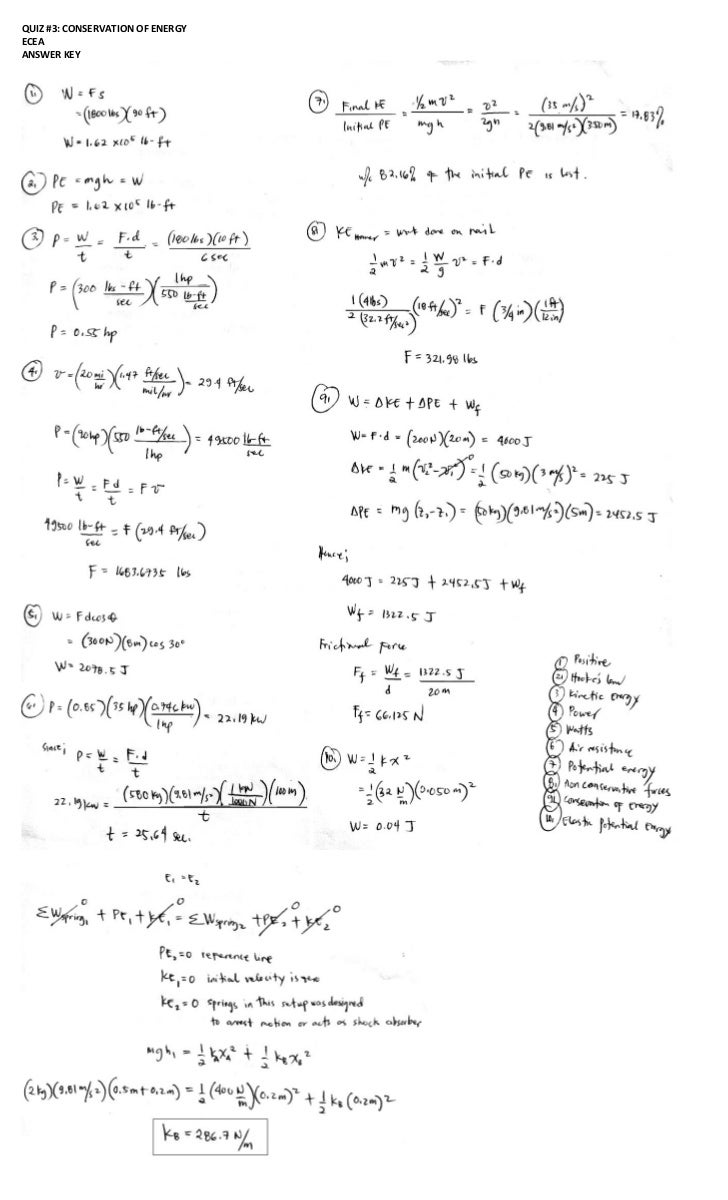 QUIZ #3: CONSERVATION OF ENERGY
ECEA
ANSWER KEY
1. W = Fs
= (1800 lbs)(90 ft)
W = 1.62 x10⁵ lb-ft
2. PE = mgh = W
PE = 1.62 x10⁵ lb-ft
3. P = W/t = F.d/t = (180 lbs)(10 ft)/6 sec
P = (300 lbs-ft/sec)(1hp/550 lb-ft/sec)
P = 0.55 hp
4. v = (20 mi/hr)(1.47 ft/sec/mil/hr) = 29.4 ft/sec
P = (90hp)(550 lb-ft/sec/1hp) = 49500 lb-ft/sec
P = W/t = Fd/t = Fv
49500 lb-ft/sec = F (29.4 ft/sec)
F = 1683.6735 lbs
5. W = Fdcosθ
= (300N)(8m) cos 30°
W = 2078.5 J
6. P = (0.85)(35 hp)(0.746 kw/1hp) = 22.19 kw
Since; P = W/t = F.d/t
22.19 kw = (580 kg)(9.81 m/s²)(1 kN/1000N)(100 m)/t
t = 25.64 sec.
7. Final KE/Initial PE = ½ mv²/mgh = v²/2gh = (35 m/s)²/2(9.81 m/s²)(350m) = 17.83%
82.16% of the initial PE is lost.
8. KE Hammer = work done on nail
½ mv² = ½ W/g v² = F.d
1(4lbs)/2(32.2 ft/sec²) (18 ft/sec)² = F (3/4 in)(1ft/12in)
F = 321.98 lbs
9. W = ΔKE + ΔPE + Wf
W = F.d = (200N)(20m) = 4000 J
ΔKE = ½ m (v₂² - v₁²)⁰ = ½ (50 kg)(3 m/s)² = 225 J
ΔPE = mg (z₂-z₁) = (50 kg)(9.81 m/s²)(5m) = 2452.5 J
Hence;
4000 J = 225J + 2452.5J + Wf
Wf = 1322.5 J
Frictional Force
Ff = Wf/d = 1322.5 J/20m
Ff = 66.125 N
10. W = ½ kx²
= ½ (32 N/m)(0.050 m)²
W = 0.04 J
1 Positive
2 Hooke's law
3 Kinetic energy
4 Power
5 Watts
6 Air resistance
7 Potential energy
8 Non conservative forces
9 Conservation of energy
10 Elastic potential energy
E₁ = E₂
ΣWspring₁⁰ + PE₁ + KE₁⁰ = ΣWspring₂ + PE₂⁰ + KE₂⁰
PE₂=0 reference line
KE₁=0 initial velocity is zero
KE₂=0 springs in this setup was designed
to arrest motion or acts as shock absorber
mgh₁ = ½ kAxA² + ½ kBxB²
(2kg)(9.81 m/s²)(0.5m+0.2m) = ½ (400 N/m)(0.2m)² + ½ kB (0.2m)²
kB = 286.7 N/m